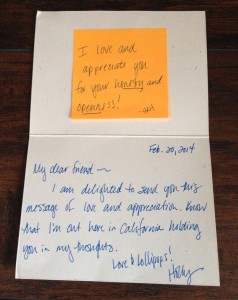 I love and
appreciate you
for your honesty and
openness!
Feb. 20, 2014
My dear friend ~
I am delighted to send you this
message of love and appreciation. Know
that I'm out here in California holding
you in my thoughts.
Love & Lollipops!
Holly